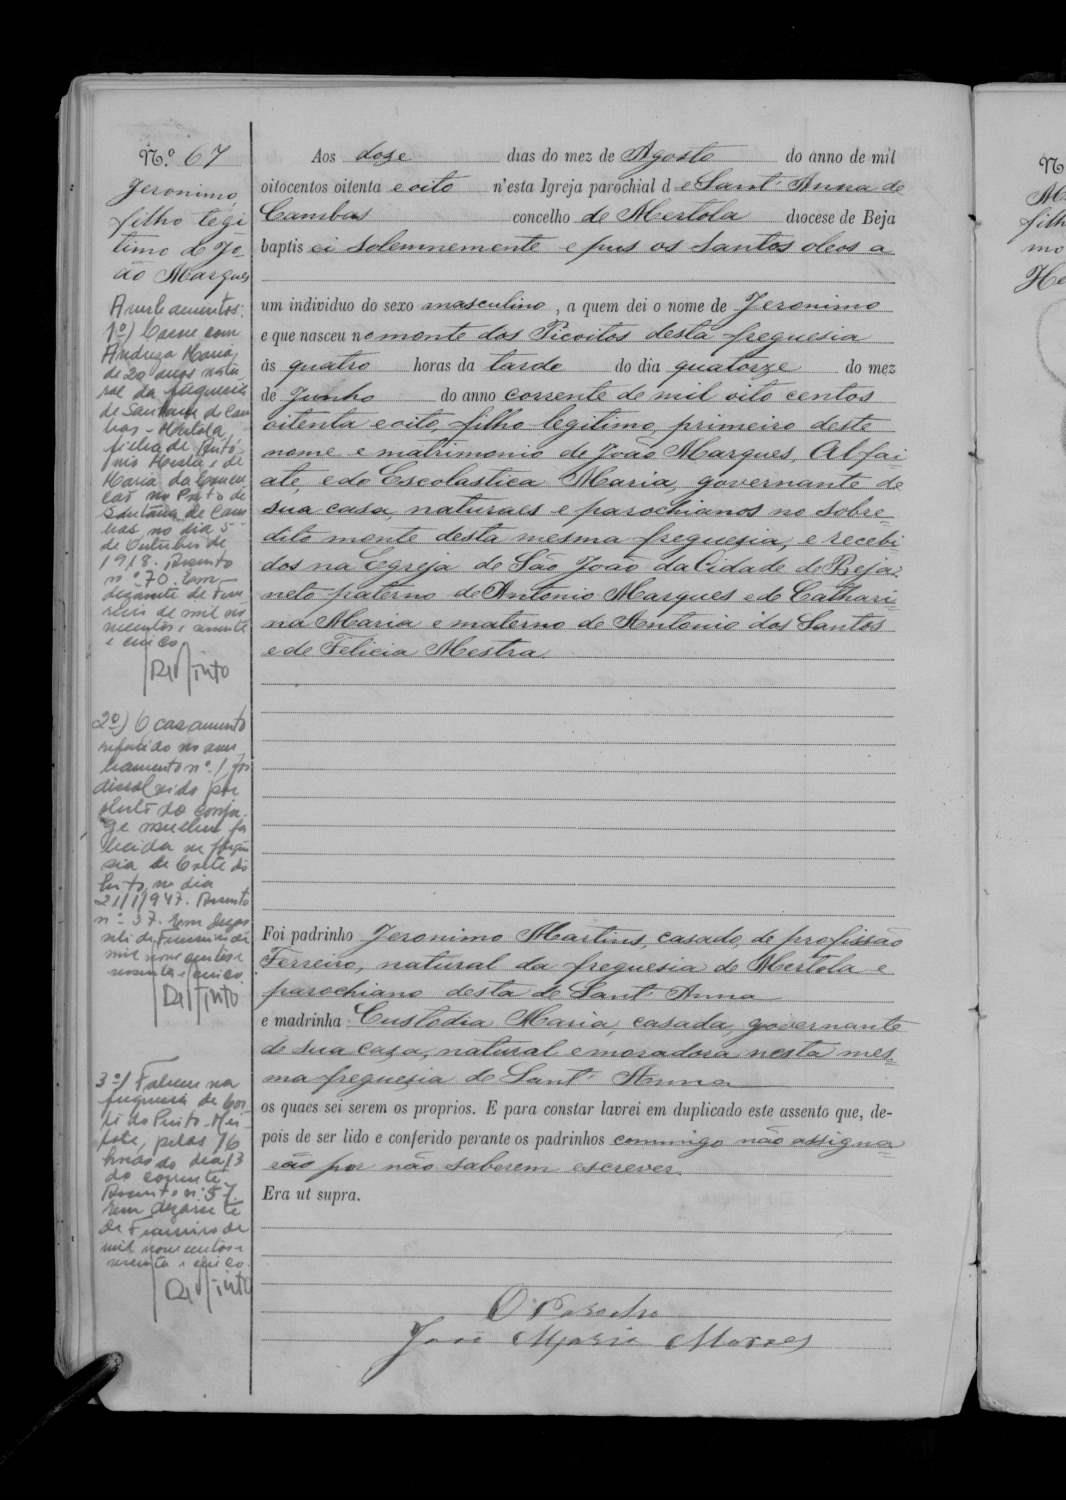 N.º 67
Jeronimo,
filho legi
timo de Jo-
ão Marques
Averbamentos:
1º) Casou com
Andreza Maria,
de 20 anos natu
ral da freguesia
de Santana de Cam
bas - Mertola
filha de Antó-
nio Mestre e de
Maria da Concei
ção no Posto de
Santana de Cam
bas no dia 5
de Outubro de
1918. Assento
n.º 70. Em
dezassete de Feve
reiro de mil no
vecentos e sessenta
e cinco
2º) O casamento
referido no aver
bamento nº. 1 foi
dissolvido por
óbito do conju-
ge mulher fa
lecida na fregue
sia de Corte do
Pinto, no dia
21/1/947. Assento
n.º 37. Em dezas
sete de Fevereiro de
mil novecentos e
sessenta e cinco
3º) Faleceu na
freguesia de Cor-
te do Pinto - Mér-
tola, pelas 16
horas do dia 13
do corrente.
Assento n.º 57.
Em dezassete
de Fevereiro de
mil novecentos e
sessenta e cinco.
Aos doze dias do mez de Agosto do anno de mil
oitocentos oitenta e oito n'esta Igreja parochial de Sant' Anna de
Cambas concelho de Mertola diocese de Beja
baptisei solemnemente e pus os santos oleos a
um individuo do sexo masculino, a quem dei o nome de Jeronimo
e que nasceu no monte dos Picoitos desta freguesia
ás quatro horas da tarde do dia quatorze do mez
de Junho do anno corrente de mil oito centos
oitenta e oito, filho legitimo, primeiro deste
nome e matrimonio de João Marques, Alfai-
ate, e de Escolastica Maria, governante de
sua casa, naturaes e parochianos no sobre-
dito monte desta mesma freguesia, e recebi
dos na Egreja de São João da Cidade de Beja:
neto paterno de Antonio Marques e de Cathari-
na Maria e materno de Antonio dos Santos
e de Felicia Mestra.
Foi padrinho Jeronimo Martins, casado, de profissão
Ferreiro, natural da freguesia de Mertola e
parochiano desta de Sant' Anna
e madrinha Custodia Maria, casada, governante
de sua casa, natural e moradora nesta mes-
ma freguesia de Sant' Anna
os quaes sei serem os proprios. E para constar lavrei em duplicado este assento que, de-
pois de ser lido e conferido perante os padrinhos commigo não assigna-
rão por não saberem escrever.
Era ut supra.
O Parocho
José Maria Moraes
N
filh
mo